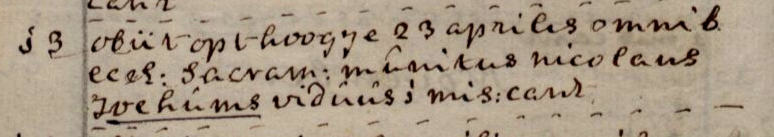 cant
13 obiit op thoogye 23 aprilis omnib
eccl: sacram: munitus nicolaus
viduus 1 mis: cant